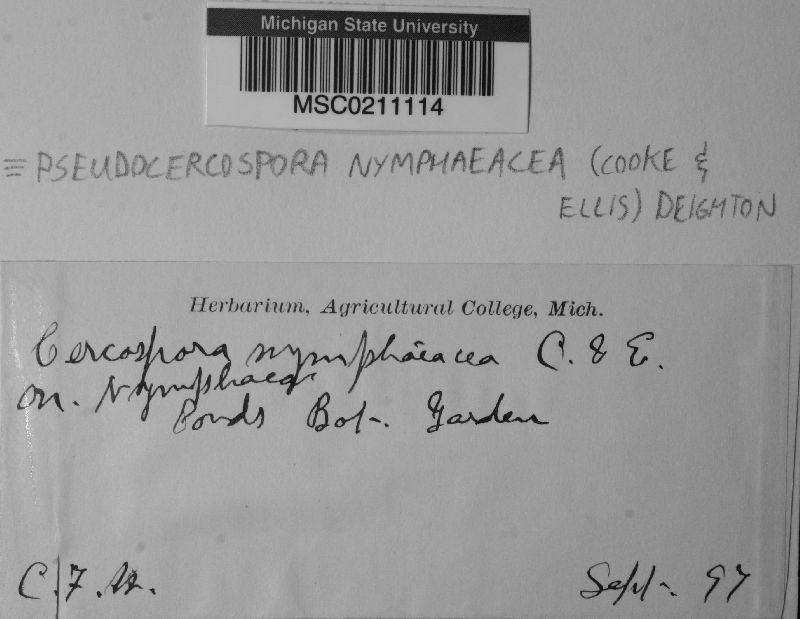 Michigan State University
MSC0211114
≡ PSEUDOCERCOSPORA NYMPHAEACEA (COOKE &
ELLIS) DEIGHTON
Herbarium, Agricultural College, Mich.
Cercospora nymphaeacea C. & E.
on. Nymphaea
Ponds Bot. Garden
C. F. W.
Sept. 97